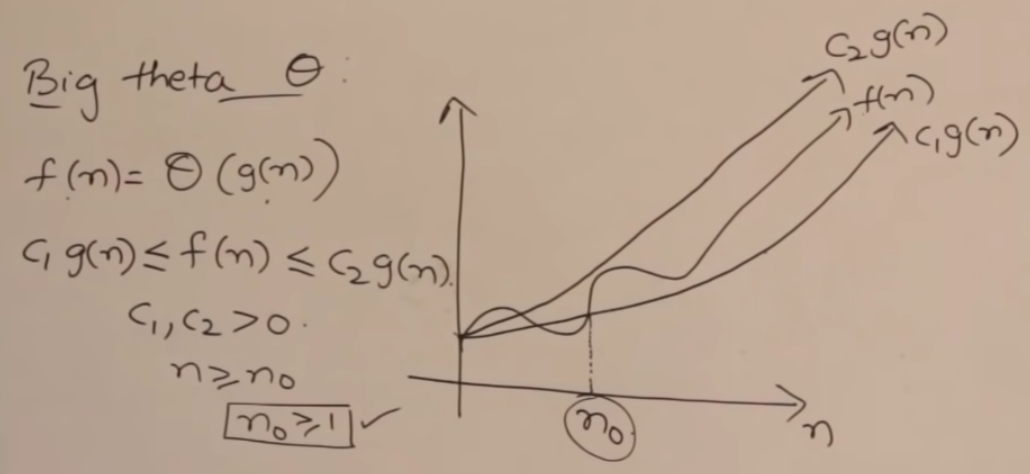 Big theta Θ:
f(n)= Θ(g(n))
c₁g(n) ≤ f(n) ≤ c₂g(n).
c₁, c₂ > 0.
n ≥ n₀
n₀ ≥ 1 ✓
c₂g(n)
f(n)
c₁g(n)
n₀
n